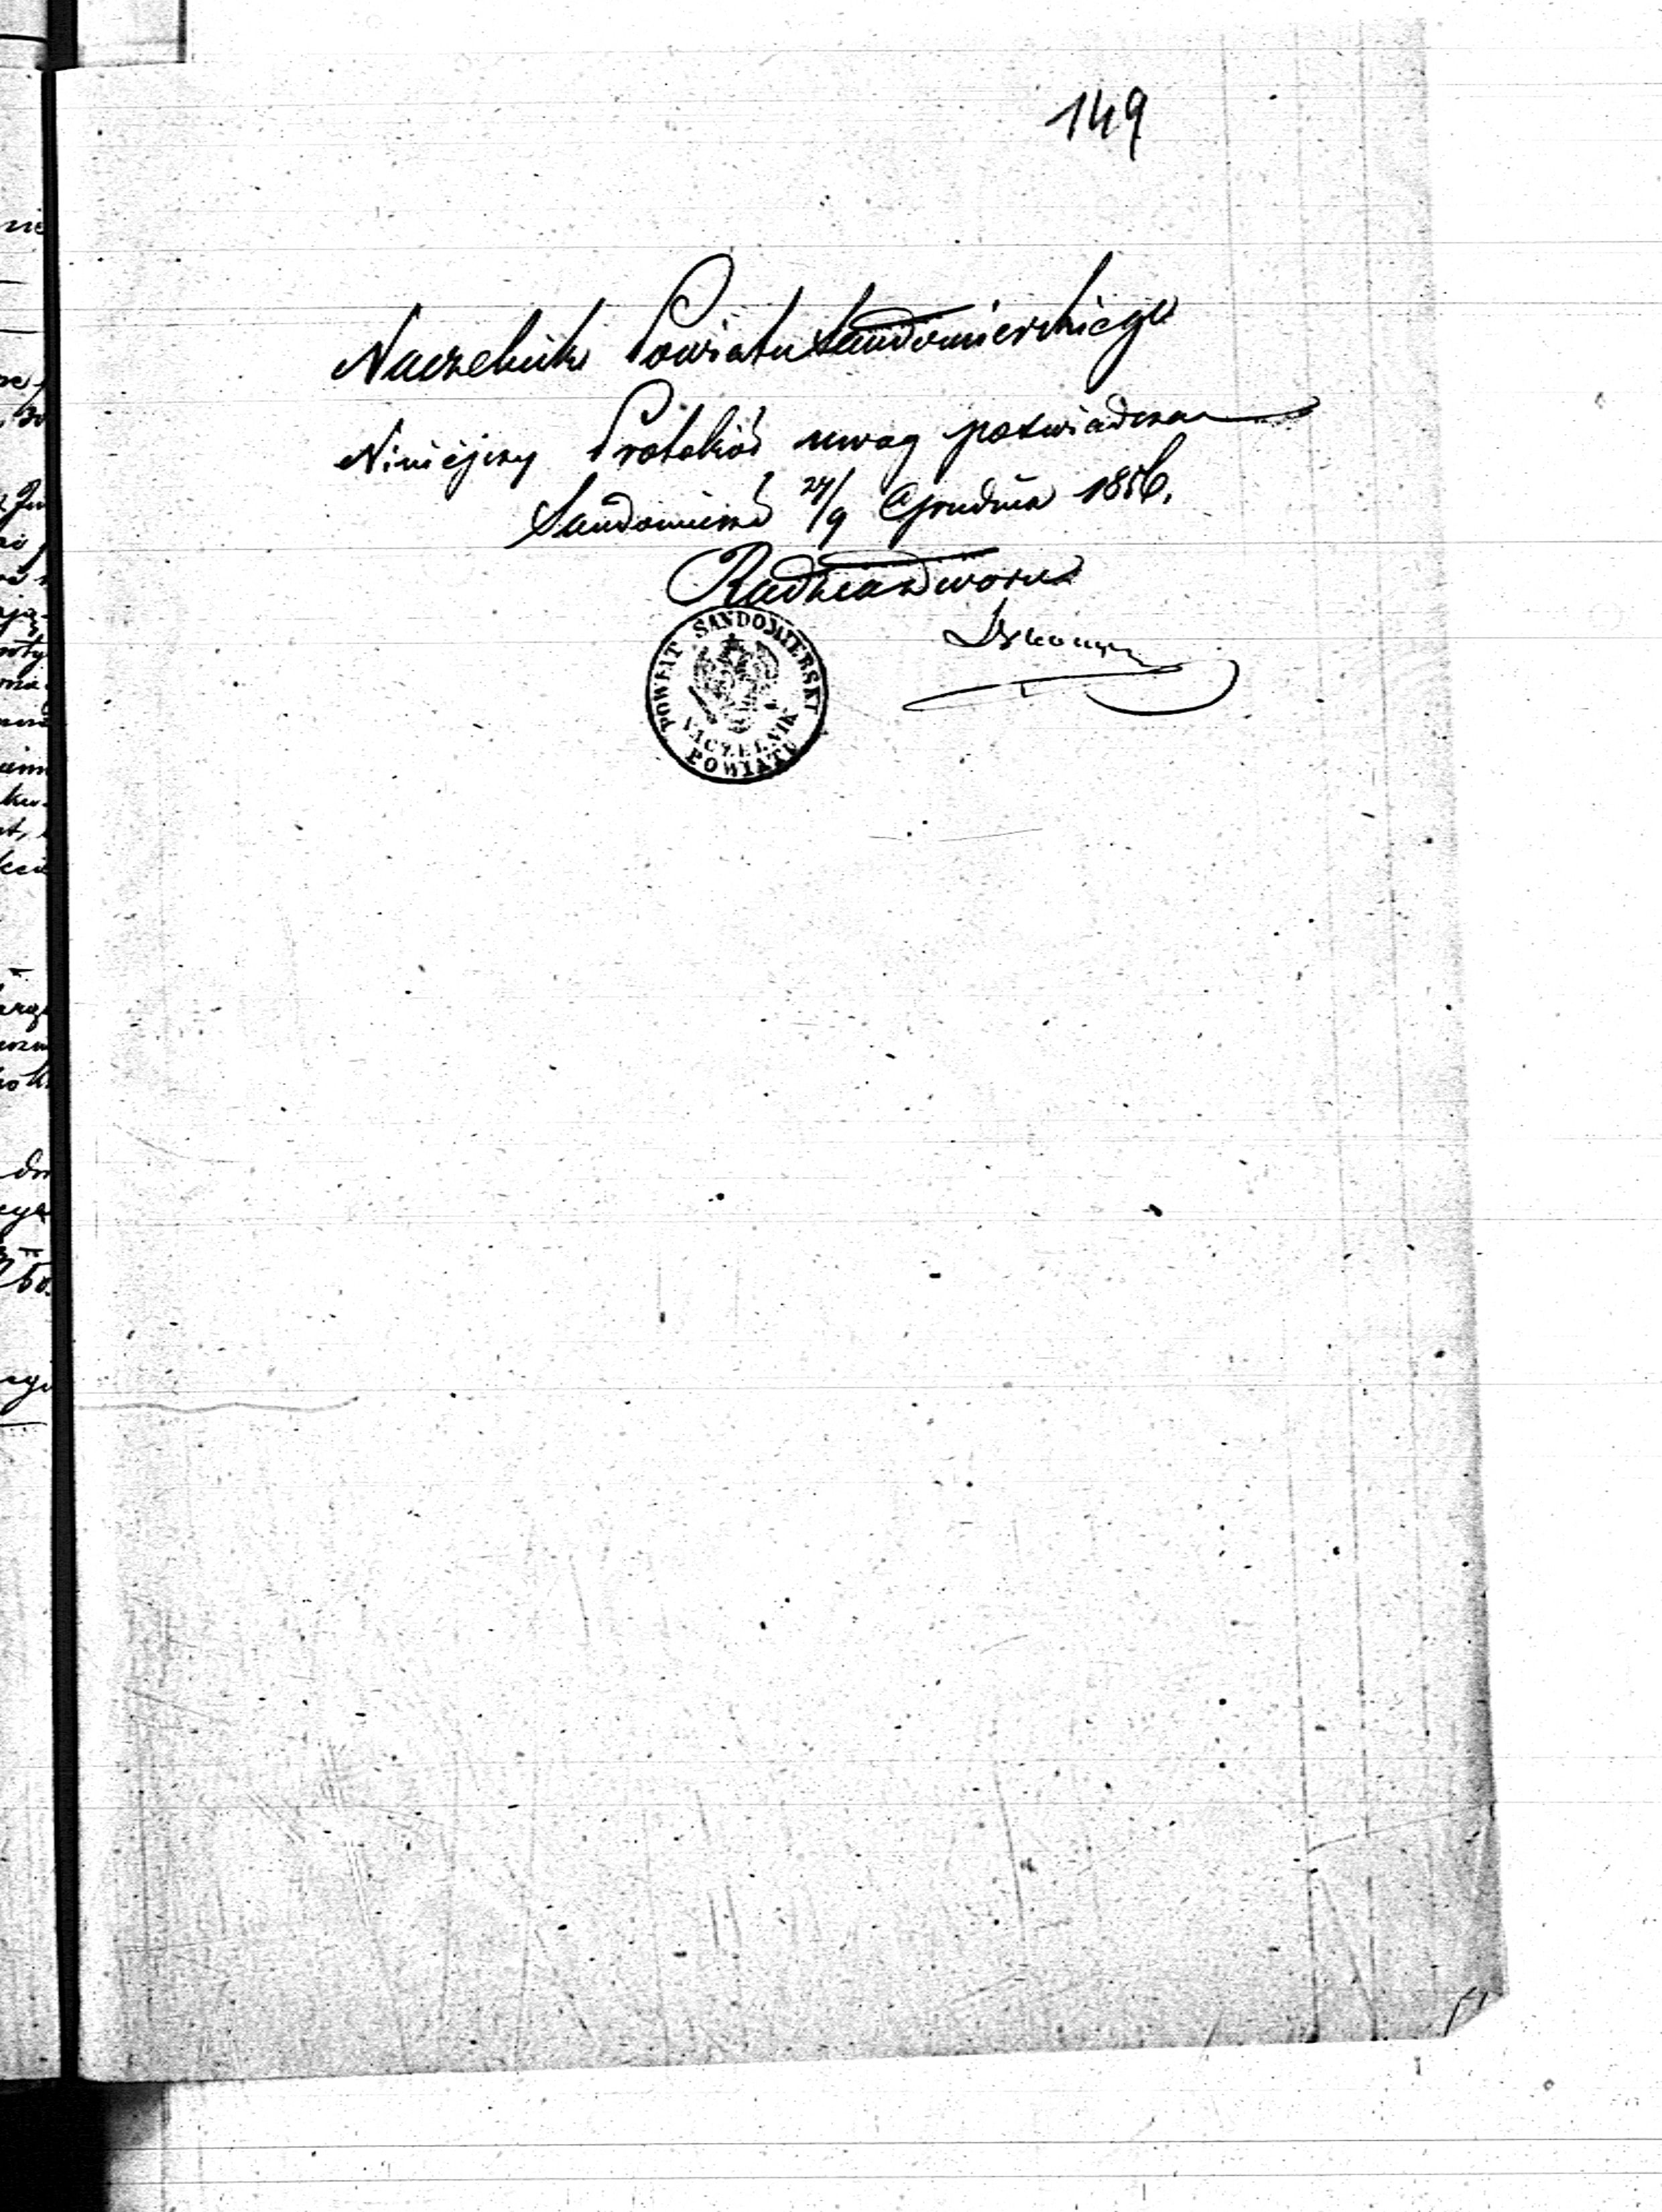 149
Naczelnik Powiatu Sandomierskiego
Niniéjszy Protokół uwag poświadcza
Sandomierz 27/9 Grudnia 1856.
Radzca Dworu
POWIAT SANDOMIERSKI
NACZELNIK
POWIATU